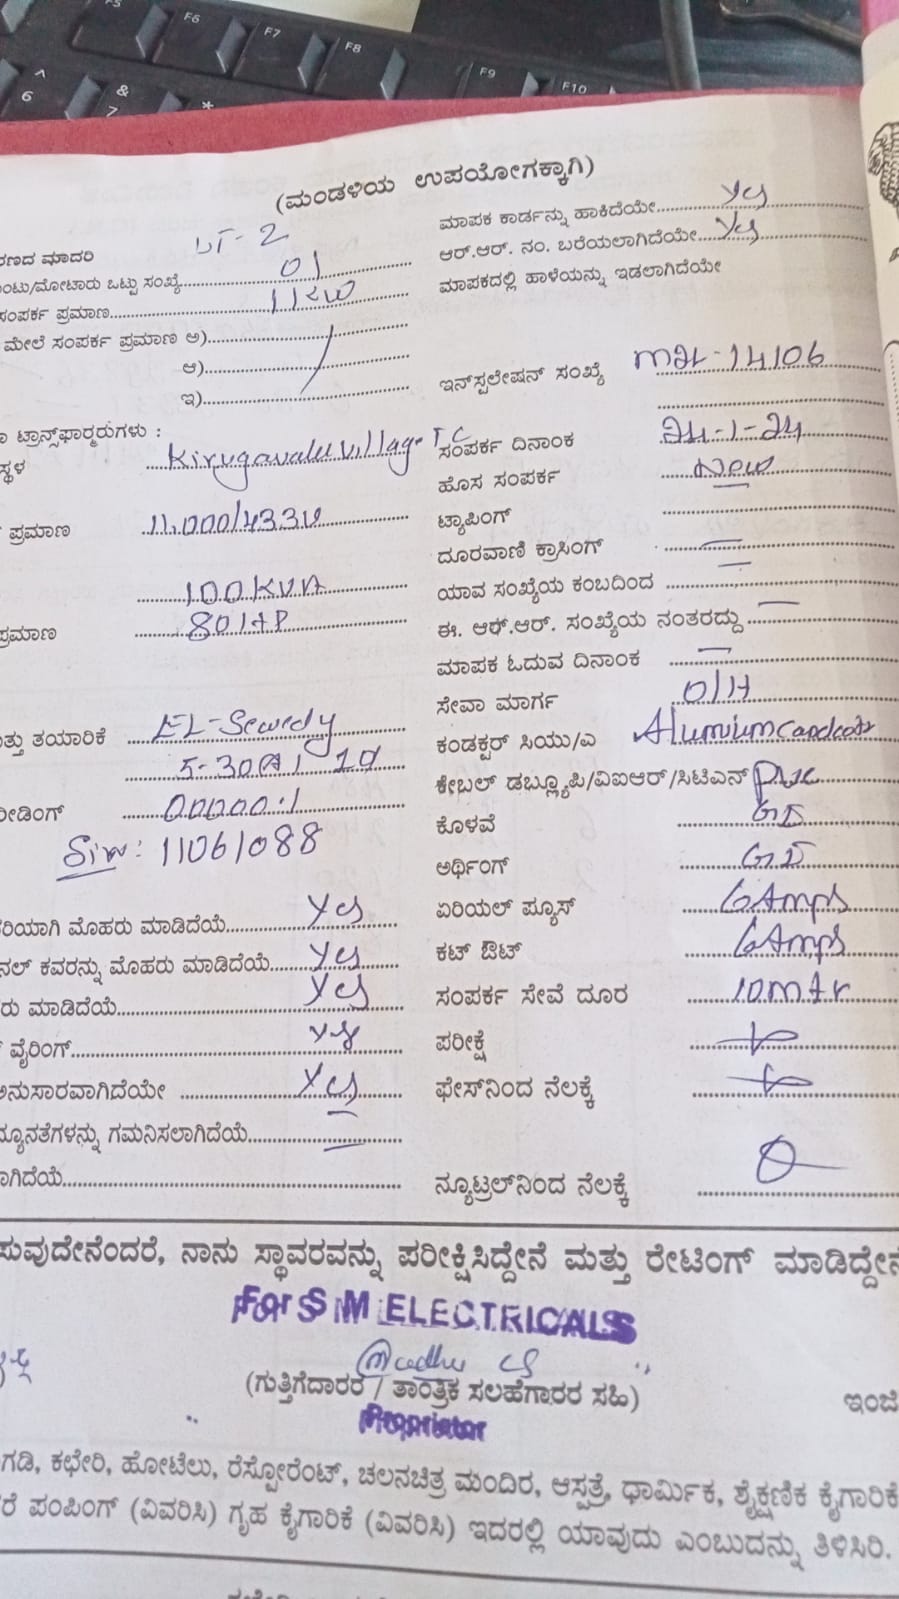 F5 F6 F7 F8 F9 F10
6 & 7 *
(ಮಂಡಳಿಯ ಉಪಯೋಗಕ್ಕಾಗಿ)
ರಣದ ಮಾದರಿ LT-2
ಂಟು/ಮೋಟಾರು ಒಟ್ಟು ಸಂಖ್ಯೆ 01
ಸಂಪರ್ಕ ಪ್ರಮಾಣ 1KW
ಮೇಲೆ ಸಂಪರ್ಕ ಪ್ರಮಾಣ ಅ)
ಆ)
ಇ)
ಾ ಟ್ರಾನ್ಸ್‌ಫಾರ್ಮರುಗಳು :
ಸ್ಥಳ Kirugavalu Village TC
ಪ್ರಮಾಣ 11,000/433V
100KVA
ಪ್ರಮಾಣ 80HP
ತ್ತು ತಯಾರಿಕೆ EL-Sewedy
5-30A 1Ø
ೀಡಿಂಗ್ 00000.1
11061088
ರಿಯಾಗಿ ಮೊಹರು ಮಾಡಿದೆಯೆ Yes
ನಲ್ ಕವರನ್ನು ಮೊಹರು ಮಾಡಿದೆಯೆ Yes
ರು ಮಾಡಿದೆಯೆ Yes
ವೈರಿಂಗ್ Yes
ಅನುಸಾರವಾಗಿದೆಯೇ Yes
ನ್ಯೂನತೆಗಳನ್ನು ಗಮನಿಸಲಾಗಿದೆಯೆ
ಾಗಿದೆಯೆ
ಮಾಪಕ ಕಾರ್ಡನ್ನು ಹಾಕಿದೆಯೇ Yes
ಆರ್.ಆರ್. ನಂ. ಬರೆಯಲಾಗಿದೆಯೇ Yes
ಮಾಪಕದಲ್ಲಿ ಹಾಳೆಯನ್ನು ಇಡಲಾಗಿದೆಯೇ
ಇನ್‌ಸ್ಟಲೇಷನ್ ಸಂಖ್ಯೆ MBL-14106
ಸಂಪರ್ಕ ದಿನಾಂಕ 24-1-24
ಹೊಸ ಸಂಪರ್ಕ New
ಟ್ಯಾಪಿಂಗ್
ದೂರವಾಣಿ ಕ್ರಾಸಿಂಗ್
ಯಾವ ಸಂಖ್ಯೆಯ ಕಂಬದಿಂದ
ಈ. ಆರ್.ಆರ್. ಸಂಖ್ಯೆಯ ನಂತರದ್ದು
ಮಾಪಕ ಓದುವ ದಿನಾಂಕ
ಸೇವಾ ಮಾರ್ಗ O/H
ಕಂಡಕ್ಟರ್ ಸಿಯು/ಎ
ಕೇಬಲ್ ಡಬ್ಲ್ಯೂಪಿ/ವಿಐಆರ್/ಸಿಟಿಎಸ್ PVC
ಕೊಳವೆ GI
ಅರ್ಥಿಂಗ್ GI
ಏರಿಯಲ್ ಪ್ಯೂಸ್ 6Amps
ಕಟ್ ಔಟ್ 6Amps
ಸಂಪರ್ಕ ಸೇವೆ ದೂರ 10mtr
ಪರೀಕ್ಷೆ
ಫೇಸ್‌ನಿಂದ ನೆಲಕ್ಕೆ
ನ್ಯೂಟ್ರಲ್‌ನಿಂದ ನೆಲಕ್ಕೆ
ಸುವುದೇನೆಂದರೆ, ನಾನು ಸ್ಥಾವರವನ್ನು ಪರೀಕ್ಷಿಸಿದ್ದೇನೆ ಮತ್ತು ರೇಟಿಂಗ್ ಮಾಡಿದ್ದೇನೆ
For S M ELECTRICALS
Madhu
(ಗುತ್ತಿಗೆದಾರರ / ತಾಂತ್ರಿಕ ಸಲಹೆಗಾರರ ಸಹಿ) ಇಂಜಿ
Proprietor
ಗಡಿ, ಕಛೇರಿ, ಹೋಟೆಲು, ರೆಸ್ಟೋರೆಂಟ್, ಚಲನಚಿತ್ರ ಮಂದಿರ, ಆಸ್ಪತ್ರೆ, ಧಾರ್ಮಿಕ, ಶೈಕ್ಷಣಿಕ ಕೈಗಾರಿಕೆ
ರೆ ಪಂಪಿಂಗ್ (ವಿವರಿಸಿ) ಗೃಹ ಕೈಗಾರಿಕೆ (ವಿವರಿಸಿ) ಇದರಲ್ಲಿ ಯಾವುದು ಎಂಬುದನ್ನು ತಿಳಿಸಿರಿ.